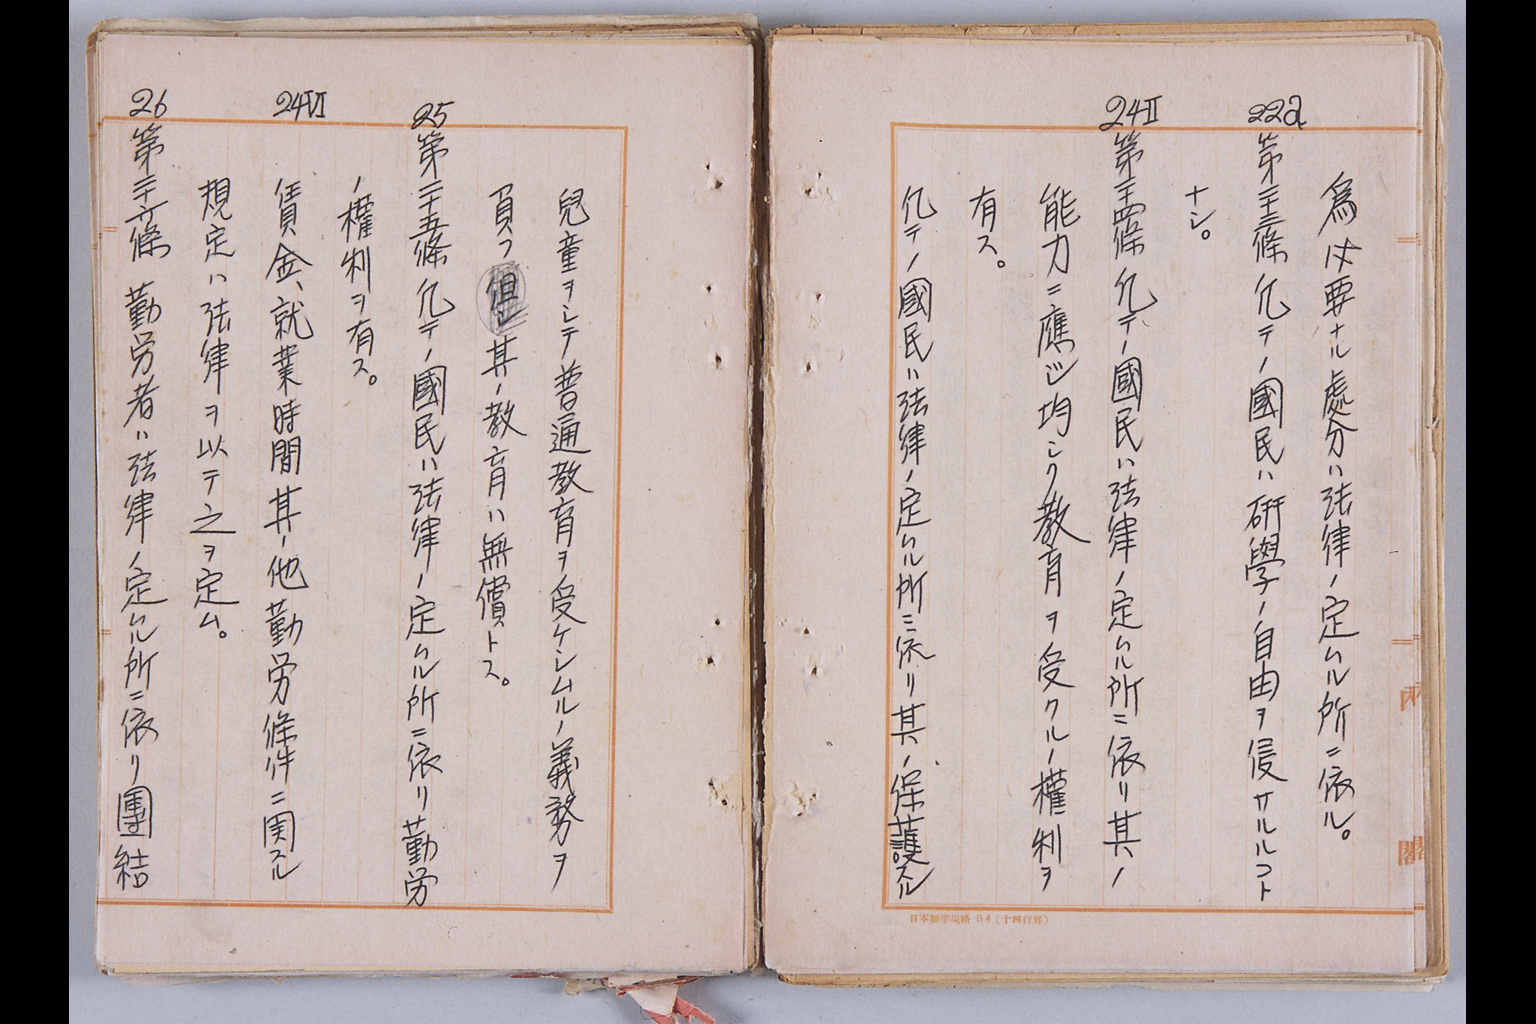 為必要ナル處分ハ法律ノ定ムル所ニ依ル。
22a
第二十三條 凡テノ國民ハ研學ノ自由ヲ侵サルルコト
ナシ。
24II
第二十四條 凡テノ國民ハ法律ノ定ムル所ニ依リ其ノ
能力ニ應ジ均シク教育ヲ受クルノ權利ヲ
有ス。
凡テノ國民ハ法律ノ定ムル所ニ依リ其ノ保護スル
内閣
日本標準規格 B4 (十四行罫)
兒童ヲシテ普通教育ヲ受ケシムルノ義務ヲ
負フ但シ其ノ教育ハ無償トス。
25
第二十五條 凡テノ國民ハ法律ノ定ムル所ニ依リ勤労
ノ權利ヲ有ス。
24VI
賃金、就業時間其ノ他勤労條件ニ関スル
規定ハ法律ヲ以テ之ヲ定ム。
26
第二十六條 勤労者ハ法律ノ定ムル所ニ依リ團結